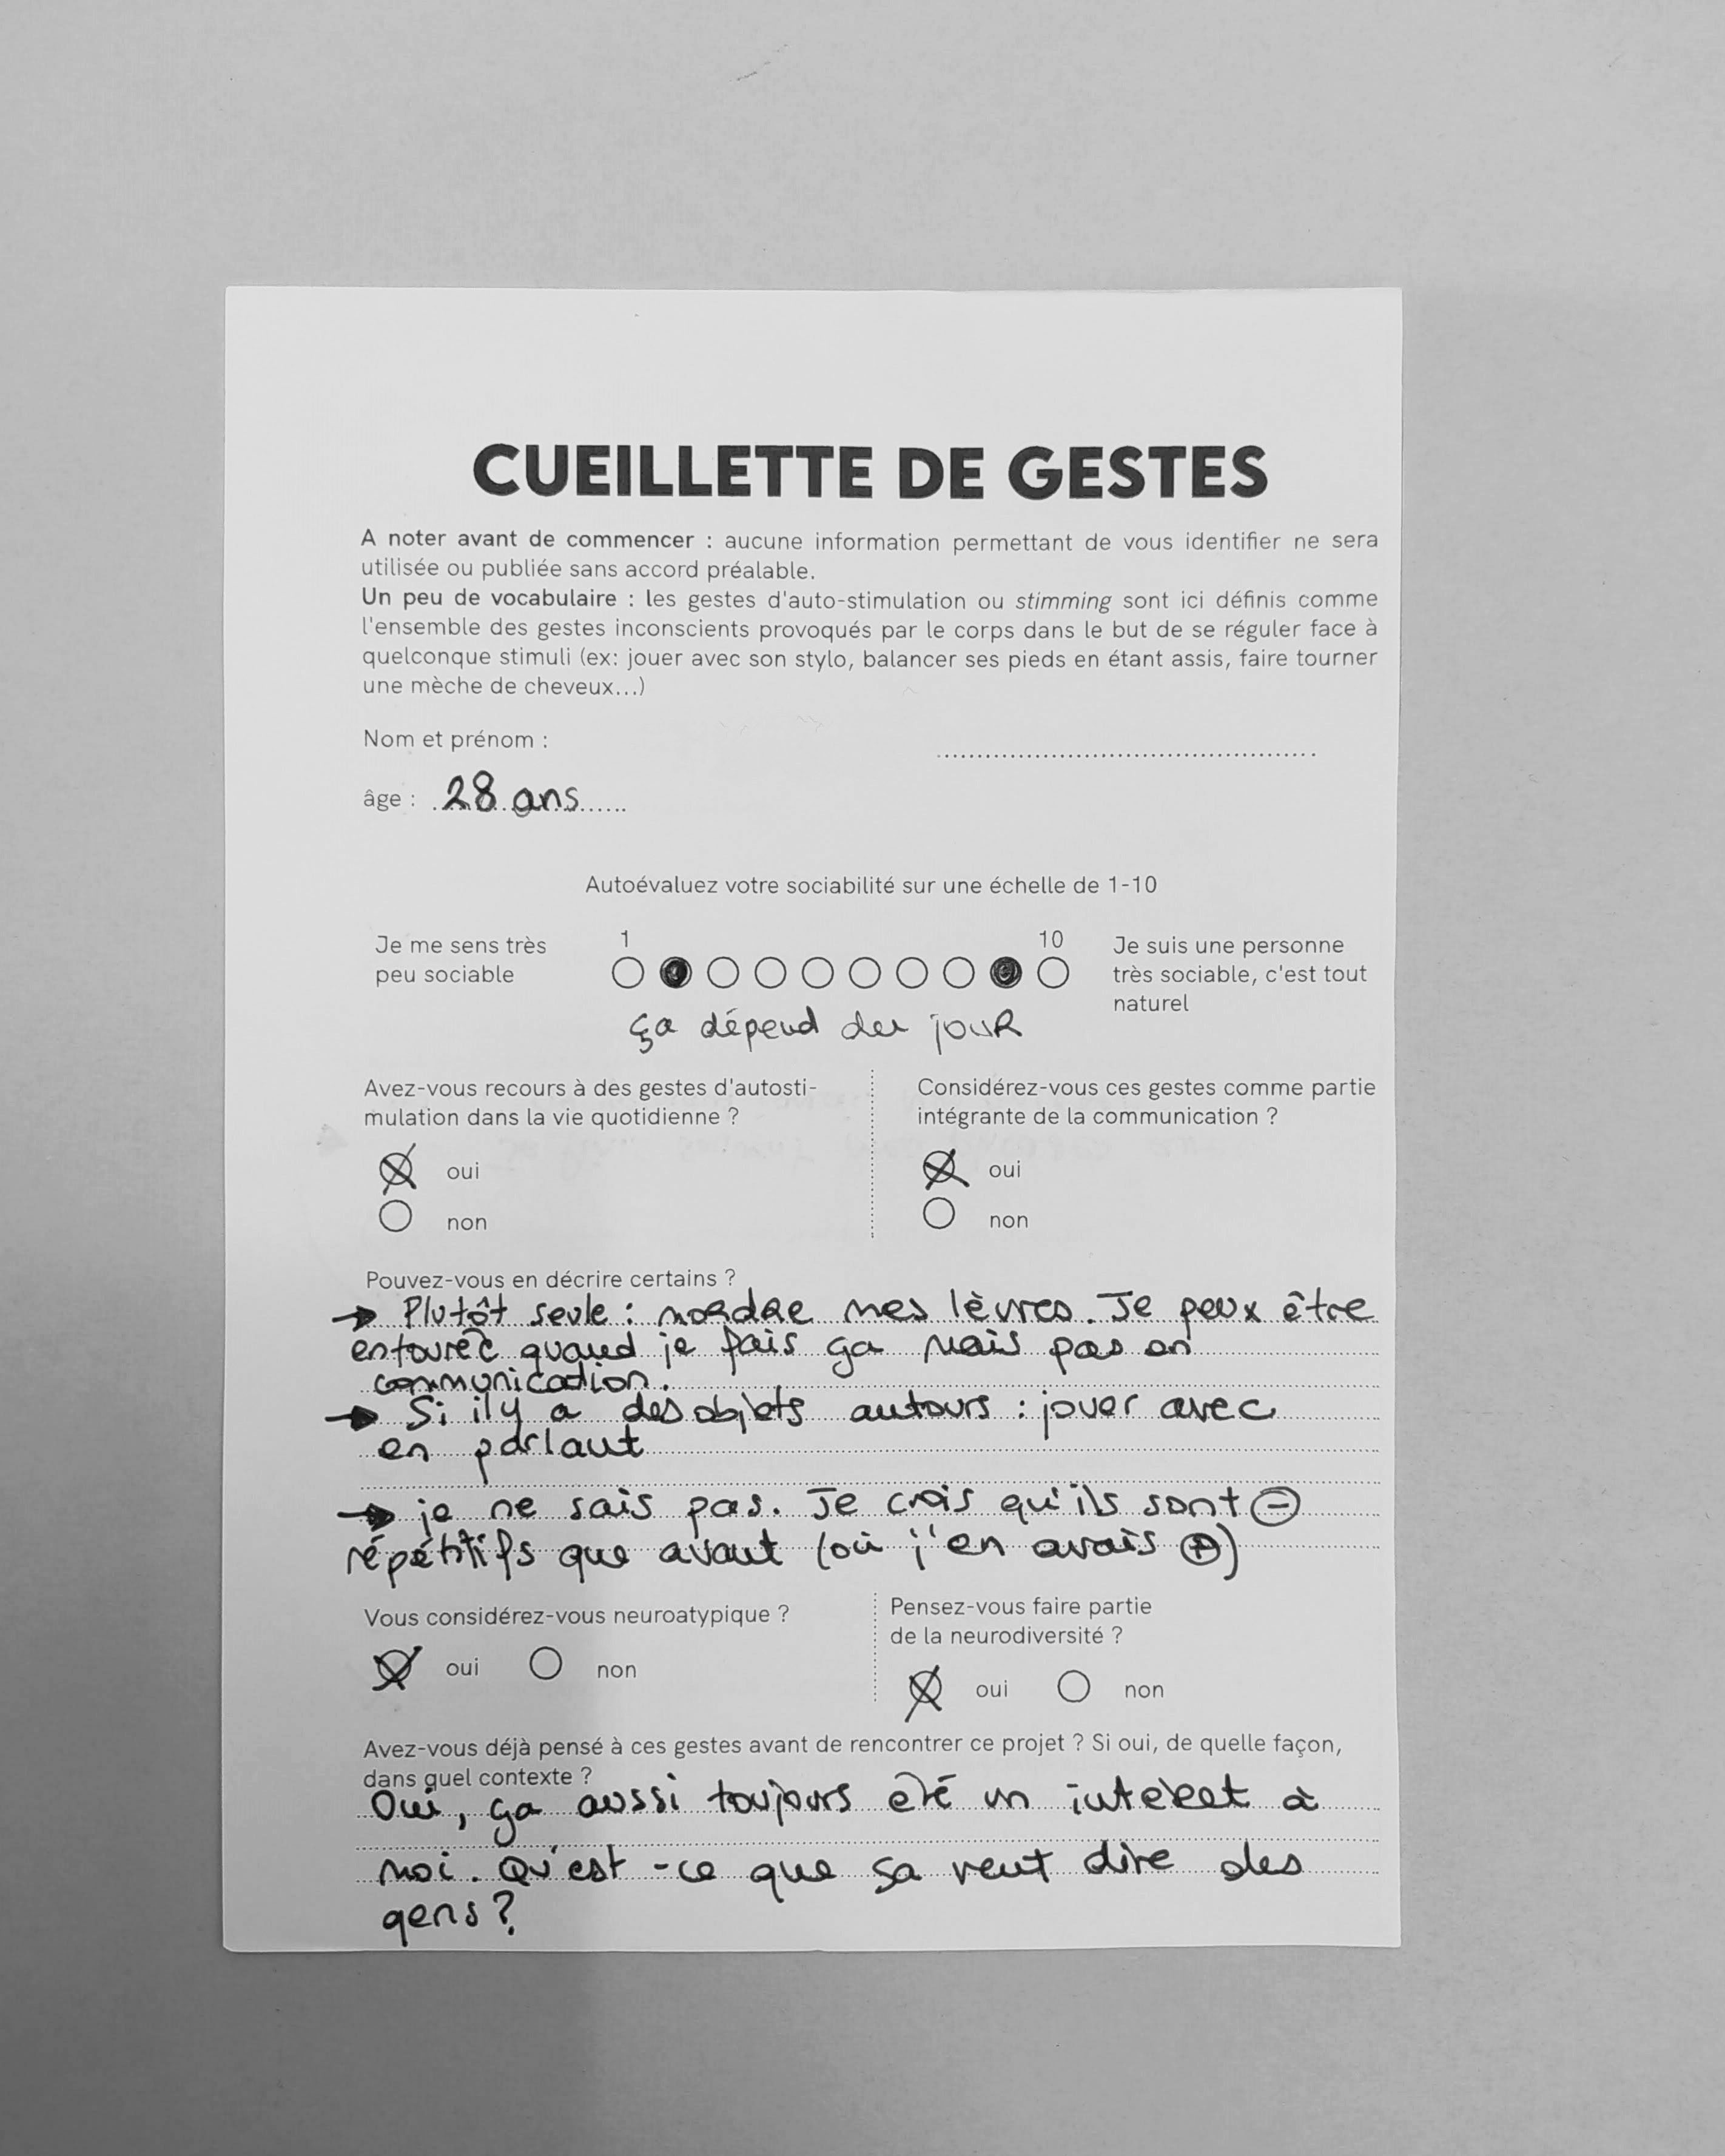 CUEILLETTE DE GESTES
A noter avant de commencer : aucune information permettant de vous identifier ne sera
utilisée ou publiée sans accord préalable.
Un peu de vocabulaire : les gestes d'auto-stimulation ou stimming sont ici définis comme
l'ensemble des gestes inconscients provoqués par le corps dans le but de se réguler face à
quelconque stimuli (ex: jouer avec son stylo, balancer ses pieds en étant assis, faire tourner
une mèche de cheveux...)
Nom et prénom :
âge : 28 ans
Autoévaluez votre sociabilité sur une échelle de 1-10
Je me sens très
peu sociable
1
10
Je suis une personne
très sociable, c'est tout
naturel
ça dépend du jour
Avez-vous recours à des gestes d'autosti-
mulation dans la vie quotidienne ?
oui
non
Considérez-vous ces gestes comme partie
intégrante de la communication ?
oui
non
Pouvez-vous en décrire certains ?
→ Plutôt seule : mordre mes lèvres. Je peux être
entouréé quand je fais ça mais pas en
communication.
→ Si il y a des objets autours : jouer avec
en parlant
→ je ne sais pas. Je crois qu'ils sont ⊖
répétitifs que avant (où j'en avais ⊕)
Vous considérez-vous neuroatypique ?
oui non
Pensez-vous faire partie
de la neurodiversité ?
oui non
Avez-vous déjà pensé à ces gestes avant de rencontrer ce projet ? Si oui, de quelle façon,
dans quel contexte ?
Oui, ça aussi toujours été un intéret à
moi. Qu'est-ce que ça veut dire des
gens ?